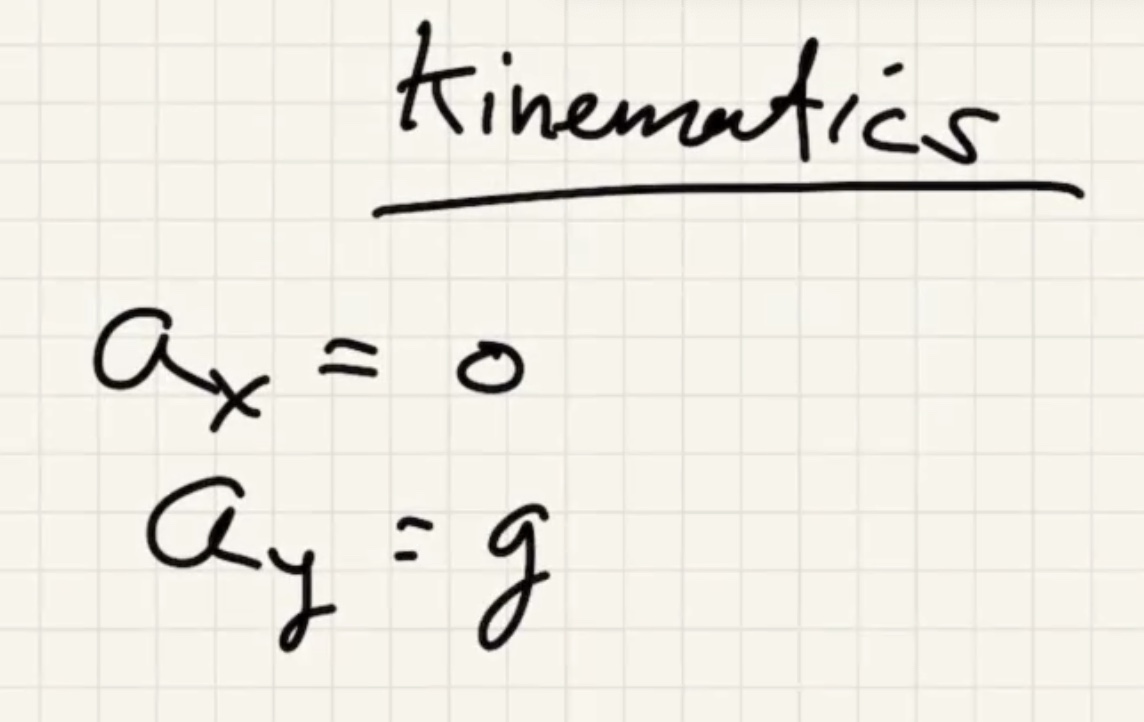 Kinematics
aₓ = 0
a_y = g